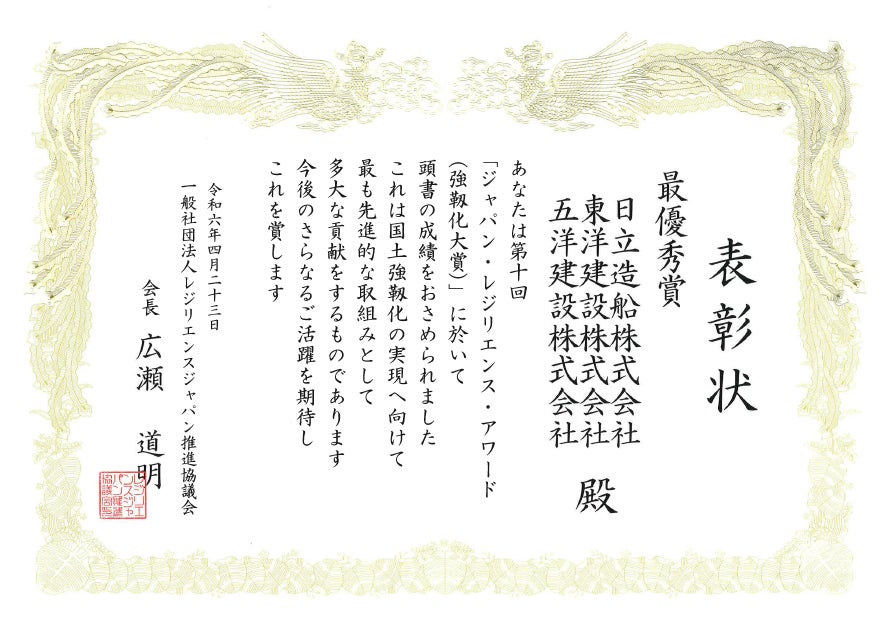 表彰状
最優秀賞
日立造船株式会社
東洋建設株式会社
五洋建設株式会社
殿
あなたは第十回
「ジャパン・レジリエンス・アワード
(強靱化大賞)」に於いて
頭書の成績をおさめられました
これは国土強靱化の実現へ向けて
最も先進的な取組みとして
多大な貢献をするものであります
今後のさらなるご活躍を期待し
これを賞します
令和六年四月二十三日
一般社団法人レジリエンスジャパン推進協議会
会長 広瀬 道明